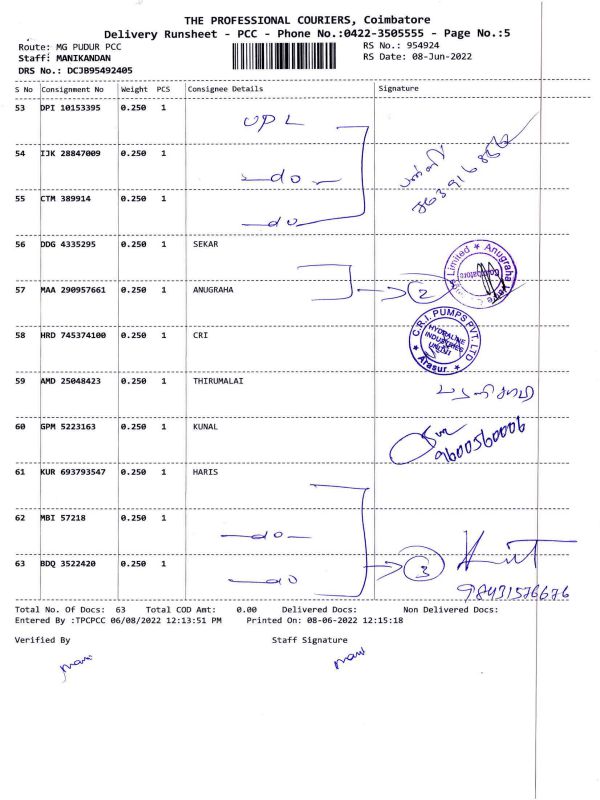 THE PROFESSIONAL COURIERS, Coimbatore
Delivery Runsheet - PCC - Phone No.:0422-3505555 - Page No.:5
Route: MG PUDUR PCC
RS No.: 954924
Staff: MANIKANDAN
RS Date: 08-Jun-2022
DRS No.: DCJB95492405
S No Consignment No Weight PCS Consignee Details Signature
53 DPI 10153395 0.250 1 UPL
54 IJK 28847009 0.250 1 -do-
55 CTM 389914 0.250 1 -do
56 DDG 4335295 0.250 1 SEKAR
57 MAA 290957661 0.250 1 ANUGRAHA 2
Limited * Anugraha
58 HRD 745374100 0.250 1 CRI
C.R.I. PUMPS PVT. LTD
HYDRALINE
INDUSTRIES
* Arasur *
59 AMD 25048423 0.250 1 THIRUMALAI
60 GPM 5223163 0.250 1 KUNAL
9600560006
61 KUR 693793547 0.250 1 HARIS
62 MBI 57218 0.250 1 -do-
63 BDQ 3522420 0.250 1 -do 3
98431576676
Total No. Of Docs: 63 Total COD Amt: 0.00 Delivered Docs: Non Delivered Docs:
Entered By :TPCPCC 06/08/2022 12:13:51 PM Printed On: 08-06-2022 12:15:18
Verified By Staff Signature
mani mani